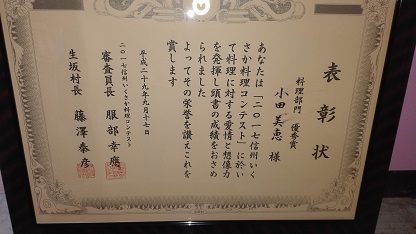 表彰状
料理部門　優秀賞
小田美恵　様
あなたは「二〇一七信州いく
さか料理コンテスト」に於い
て料理に対する愛情と想像力
を発揮し頭書の成績をおさめ
られました
よってその栄誉を讃えこれを
賞します
平成二十九年九月十七日
二〇一七信州いくさか料理コンテスト
審査員長　服部幸應
生坂村長　藤澤泰彦